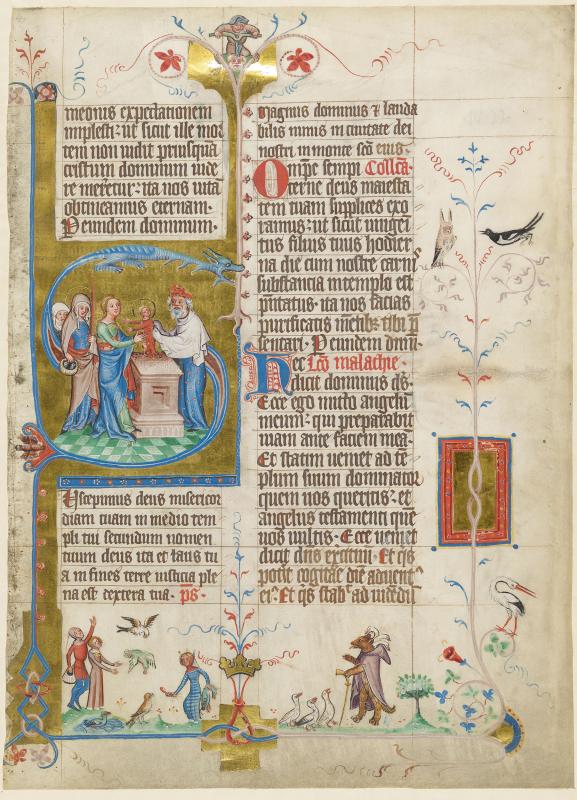 meonis expectationem
implesti: ut sicut ille mor
tem non vidit priusquā
cristum dominum vide
re meretur: ita nos vitā
obtineamus eternam.
Peundem dominum.
Uscepimus deus misericor
diam tuam in medio tem
pli tui secundum nomen
tuum deus ita et laus tu
a in fines terre iusticia ple
na est dextera tua. ps̄.
Magnus dominus ⁊ lauda
bilis nimis in ciuitate dei
nostri in monte scō eius.
Omp̄e sempi Collcā.
terne deus maiesta
tem tuam supplices exo
ramus: ut sicut unigeni
tus filius tuus hodier
na die cum nostre carnis
substancia in templo est
p̄ntatus. ita nos facias
purificatis mētibȝ tibi p̄
sentari. Peundem dnm̄.
Hec Lc̄o malachie.
dicit dominus ds̄.
Ecce ego mitto angelū
meum: qui preparabit
uiam ante faciem mea.
Et statim veniet ad tē
plum suum dominator
quem uos queritis. et
angelus testamenti quē
uos vultis. Ecce veniet
dicit dn̄s exercituū. Et qis
potit cogitare diē aduent
ei. Et qis stabit ad uidēdū